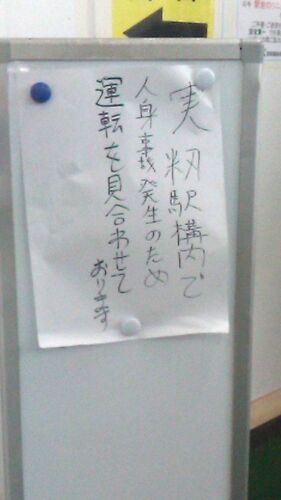 実籾駅構内で
人身事故発生のため
運転を見合わせて
おります